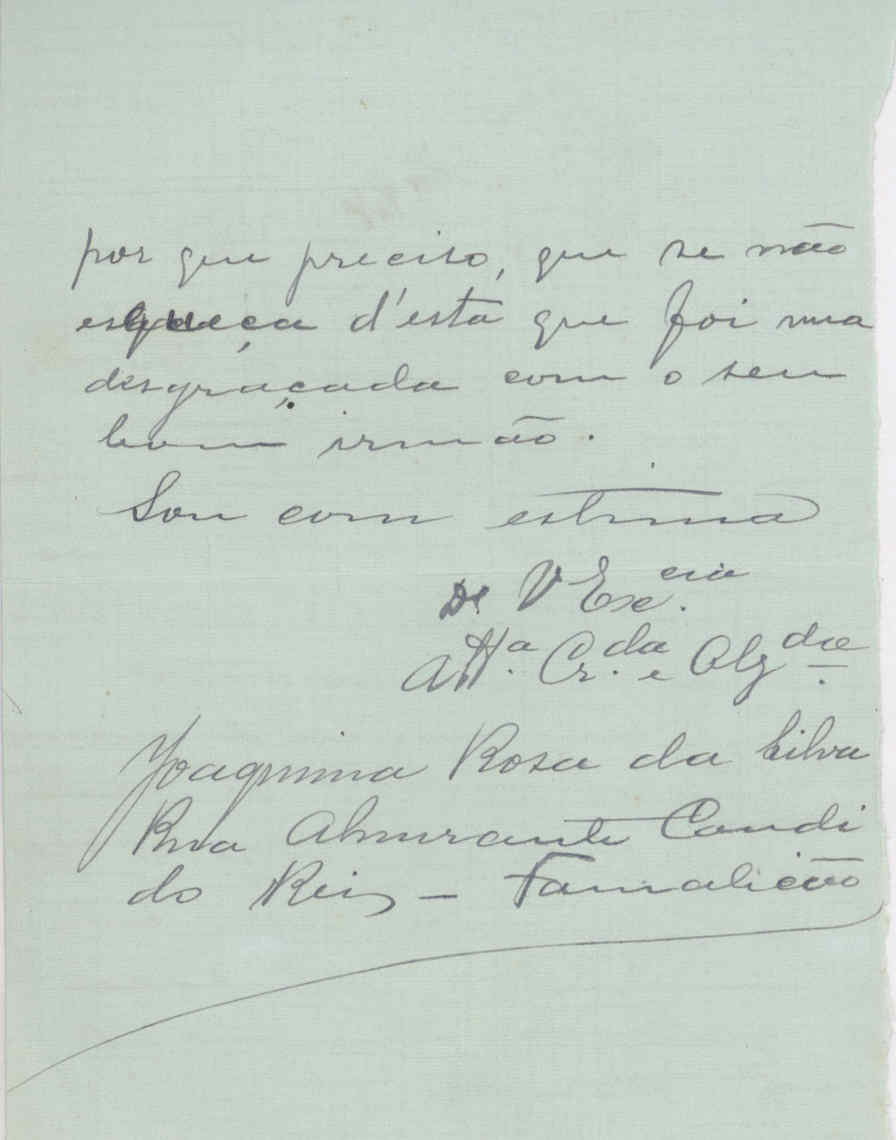 por que preciso, que se não
esqueça d'esta que foi uma
desgraçada com o seu
bom irmão.
Sou com estima
De V Exc.cia
Att.a Cr.da e Obg.da
Joaquina Rosa da Silva
Rua Almirante Candi
do Reis - Famalicão